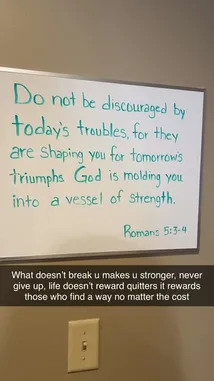 Do not be discouraged by
today's troubles, for they
are shaping you for tomorrow's
triumphs. God is molding you
into a vessel of strength.
Romans 5:3-4
What doesn't break u makes u stronger, never
give up, life doesn't reward quitters it rewards
those who find a way no matter the cost